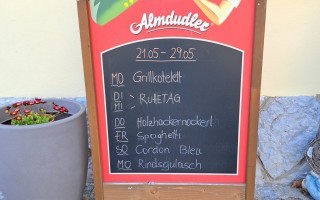 Almdudler
21.05 - 29.05
MO Grillkotelett
DI
MI RUHETAG
DO Holzhackernockerl
FR Spaghetti
SO Cordon Bleu
MO Rindsgulasch